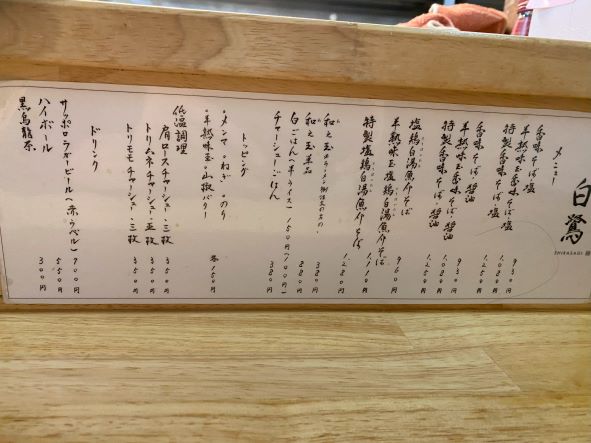 白鷺
SHIRASAGI
メニュー
香味そば・塩 930円
半熟味玉香味そば・塩 1,080円
特製香味そば・塩 1,250円
香味そば・醤油 930円
半熟味玉香味そば・醤油 1,080円
特製香味そば・醤油 1,250円
塩鶏白湯魚介そば 960円
半熟味玉塩鶏白湯魚介そば 1,110円
特製塩鶏白湯魚介そば 1,280円
和え玉 380円
和え玉単品 380円
白ごはん(半ライス) 150円(100円)
チャーシューごはん 380円
トッピング
・メンマ・ねぎ・のり
・半熟味玉・山椒バター 各150円
低温調理
肩ロースチャーシュー・三枚 350円
トリムネチャーシュー・五枚 350円
トリモモチャーシュー・三枚 350円
ドリンク
サッポロラガービール(赤ラベル) 700円
ハイボール 550円
黒烏龍茶 300円